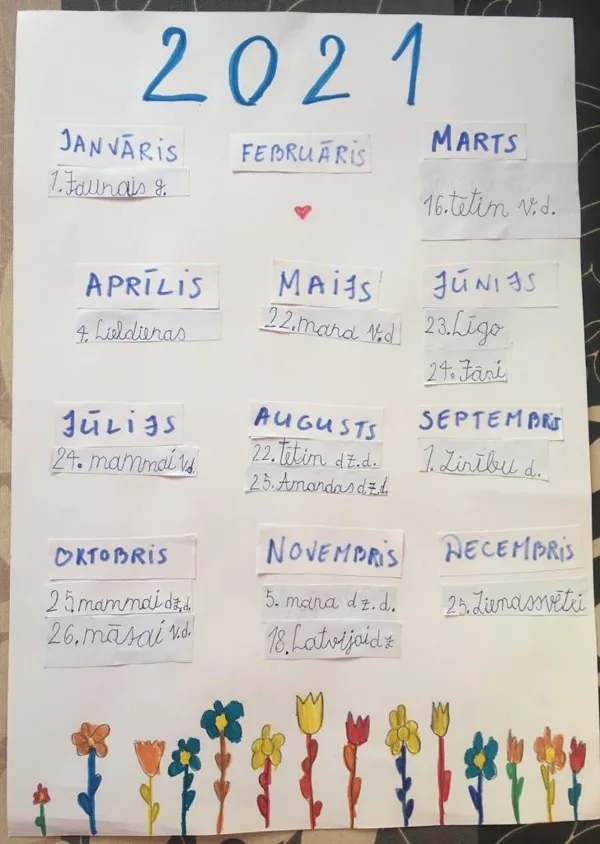 2021
JANVĀRIS
1. Jaunais g.
FEBRUĀRIS
MARTS
16. tētim v.d.
APRĪLIS
4. Lieldienas
MAIJS
22. mana v.d
JŪNIJS
23. Līgo
24. Jāņi
JŪLIJS
24. mammai v.d.
AUGUSTS
22. tētim dz.d.
25. Amandas dz.d
SEPTEMBRIS
1. Zinību d.
OKTOBRIS
25 mammai dz.d
26. māsai v.d.
NOVEMBRIS
5. mana dz.d.
18. Latvijai dz
DECEMBRIS
25. Ziemassvētki